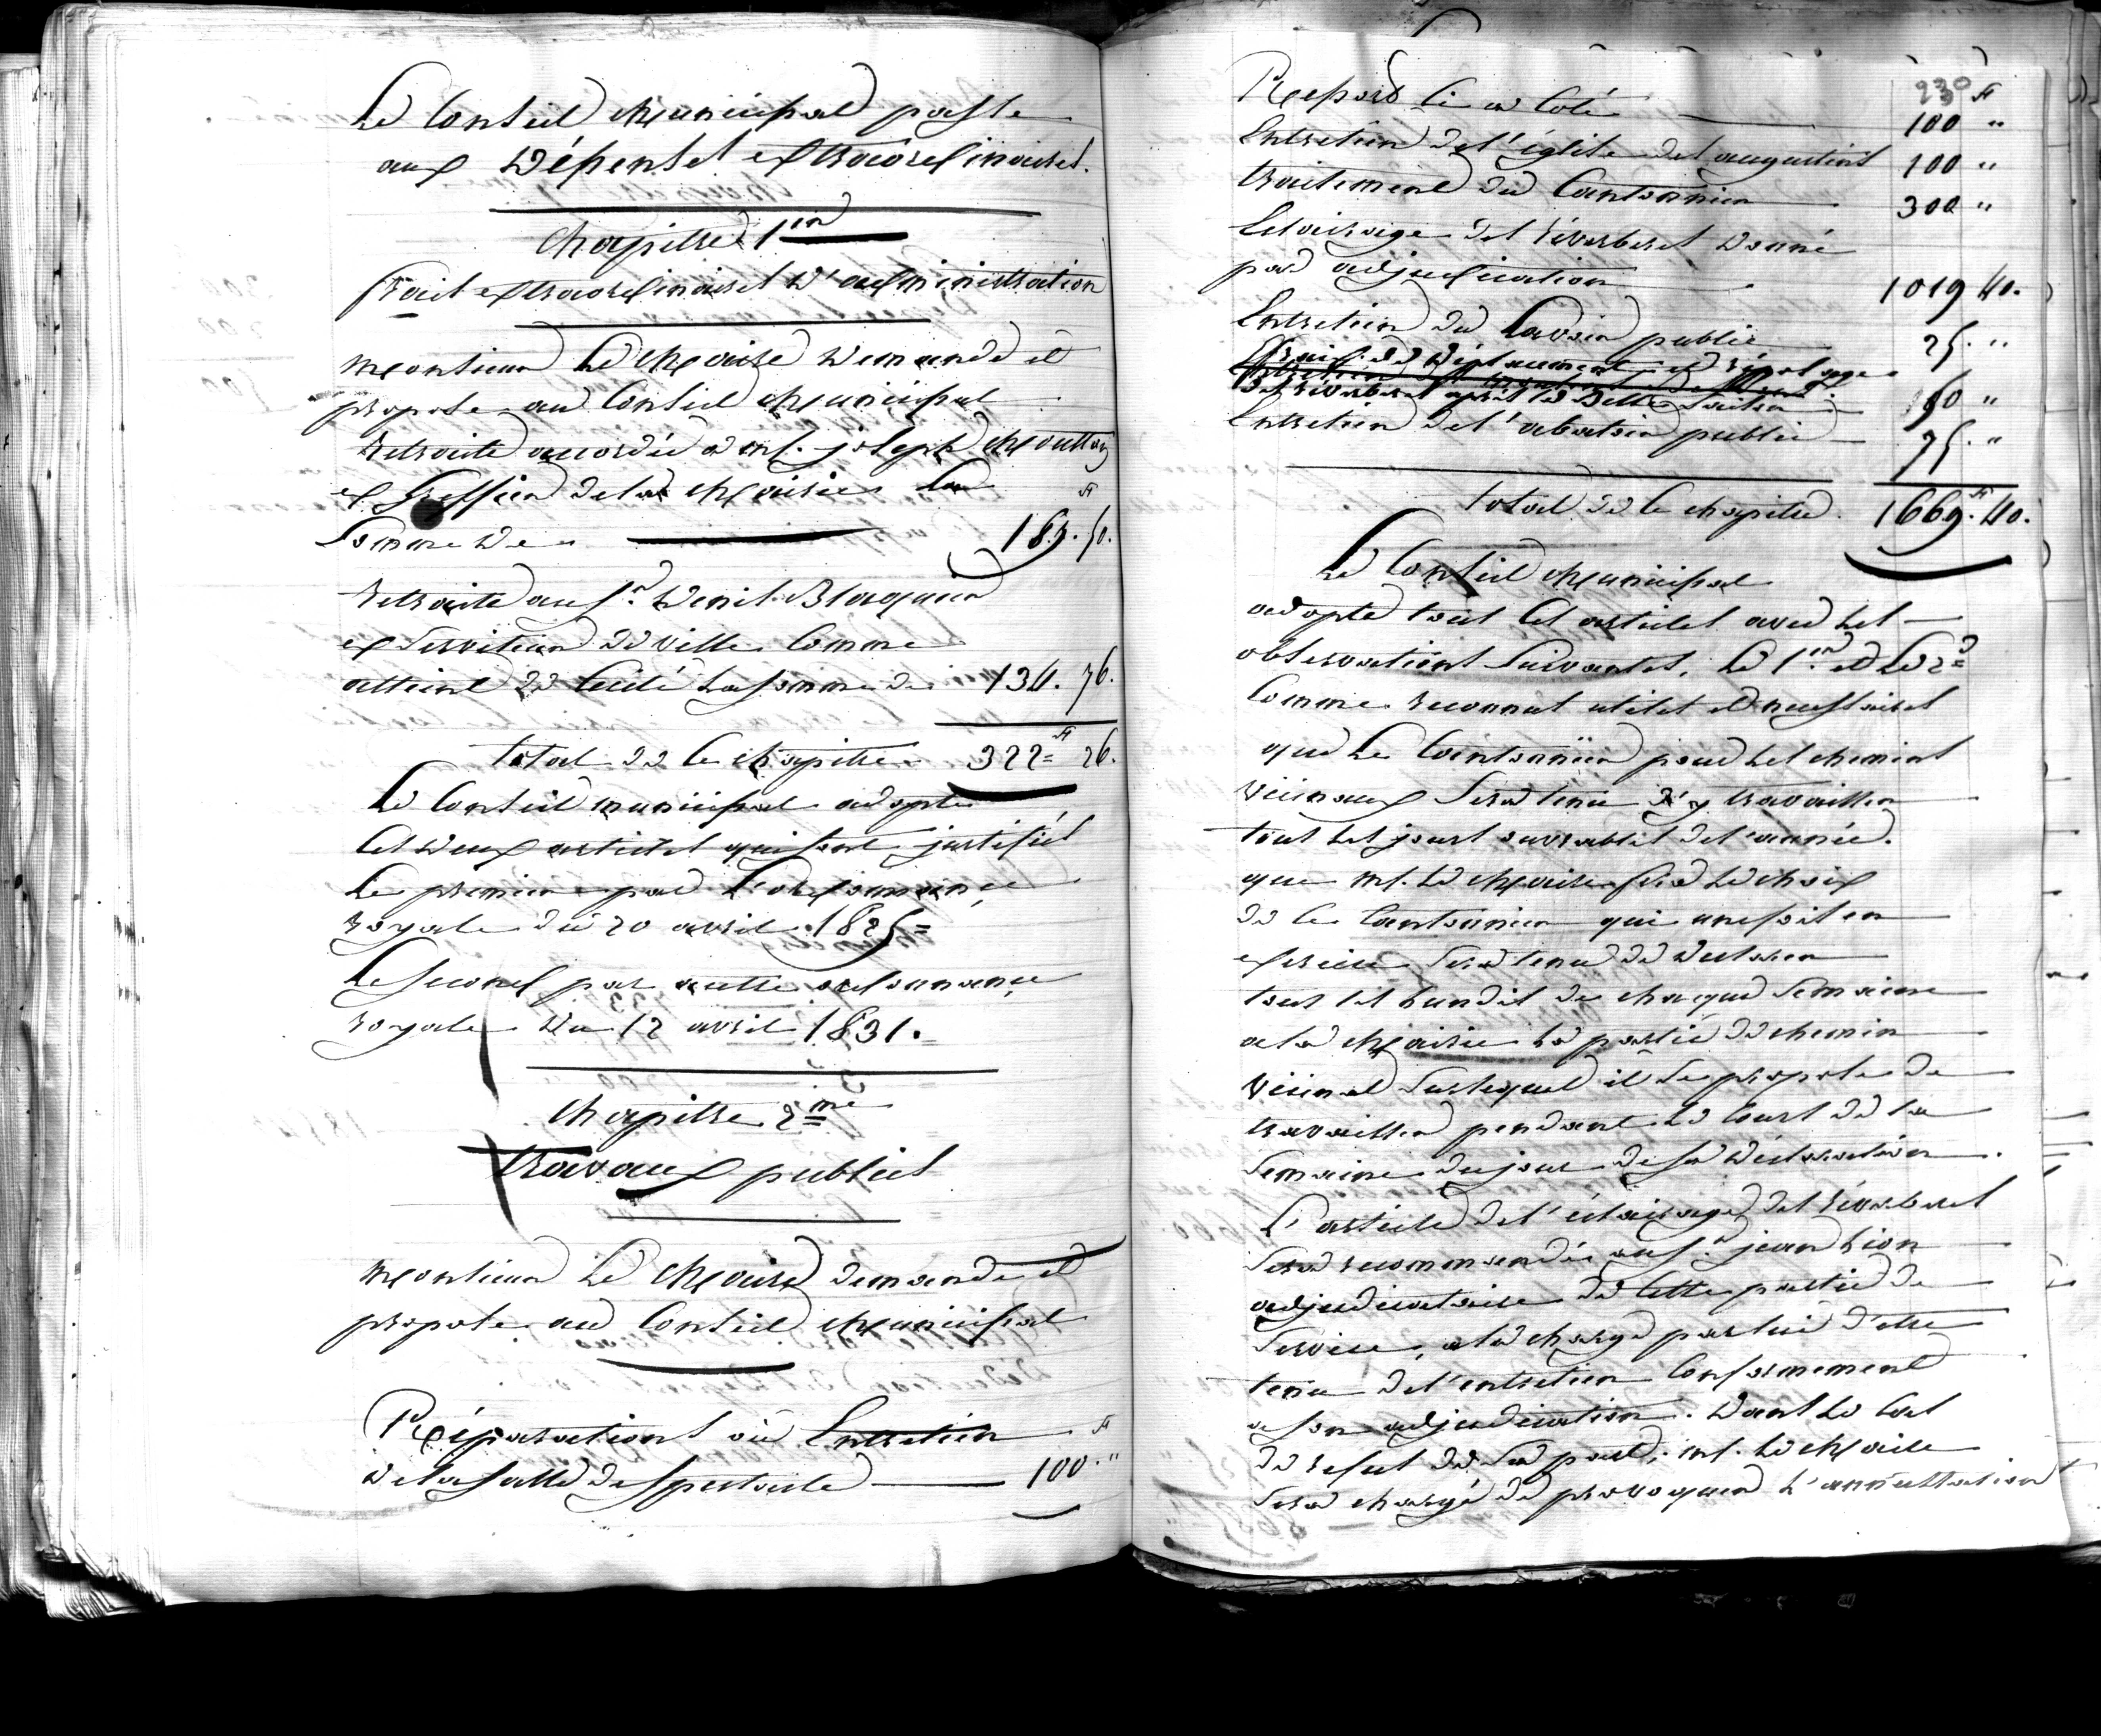 Le Conseil Municipal passe
aux Dépenses extraordinaires.
Chapitre 1er
frais extraordinaires d'administration
Monsieur Le Maire demande et
propose au Conseil Municipal
Retraite accordée a Mr. joseph
ex Greffier de la Mairie La
Somme de 187.50.
Retraite au Sr. Denis Blaquier
ex Serviteur de ville Comme
atteint de Cécité la somme de 134.76.
total de ce chapitre 322 = 26.
Le Conseil municipal adopte
Ces deux articles qui sont justifiés
Le premier par L'ordonnance
royale du 20 avril 1825 =
Le second par autre ordonnance
royale du 12 avril 1831.
Chapitre 2me
travaux publics
Monsieur Le Maire demande et
propose au Conseil Municipal
Réparations où Entretien
de la salle de spectacle 100. "
230
Report Ci a Coté 100 "
Entretien de l'église des augustins 100 "
traitement du Cantonnier 300 "
Eclairage des réverbères donné
par adjudication 1019 40.
Entretien du Lavoir public 25. "
frais de déplacement et répolage
des réverbères après la Belle Saison 50 "
Entretien de l'abatoir public 75. "
total de ce chapitre 1669. 40.
Le Conseil Municipal
adopte tous Ces articles avec les
observations Suivantes, Le 1er et Le 2e
Comme reconnus utiles et nécessaires
que Le Cantonnier pour les chemins
vicinaux Sera tenu d'y travailler
tous les jours ouvrables de l'année.
que Mr. Le Maire fera le choix
de Ce Cantonnier qui une fois en
exercice Sera tenu de déclarer
tous les Lundis de chaque Semaine
a la Mairie la partie de chemin
vicinal Sur lequel il Se propose de
travailler pendant Le Cours de la
Semaine du jour de sa déclaration.
L'article de l'éclairage des réverberes
Sera recommandé au Sr. jean Lion
adjudicataire de Cette partie de
Service, a la charge par lui d'etre
tenu de l'entretien Conformement
a son adjudication. Dans le Cas
de refus de Sa part, Mr. Le Maire
Sera chargé de provoquer L'annullation